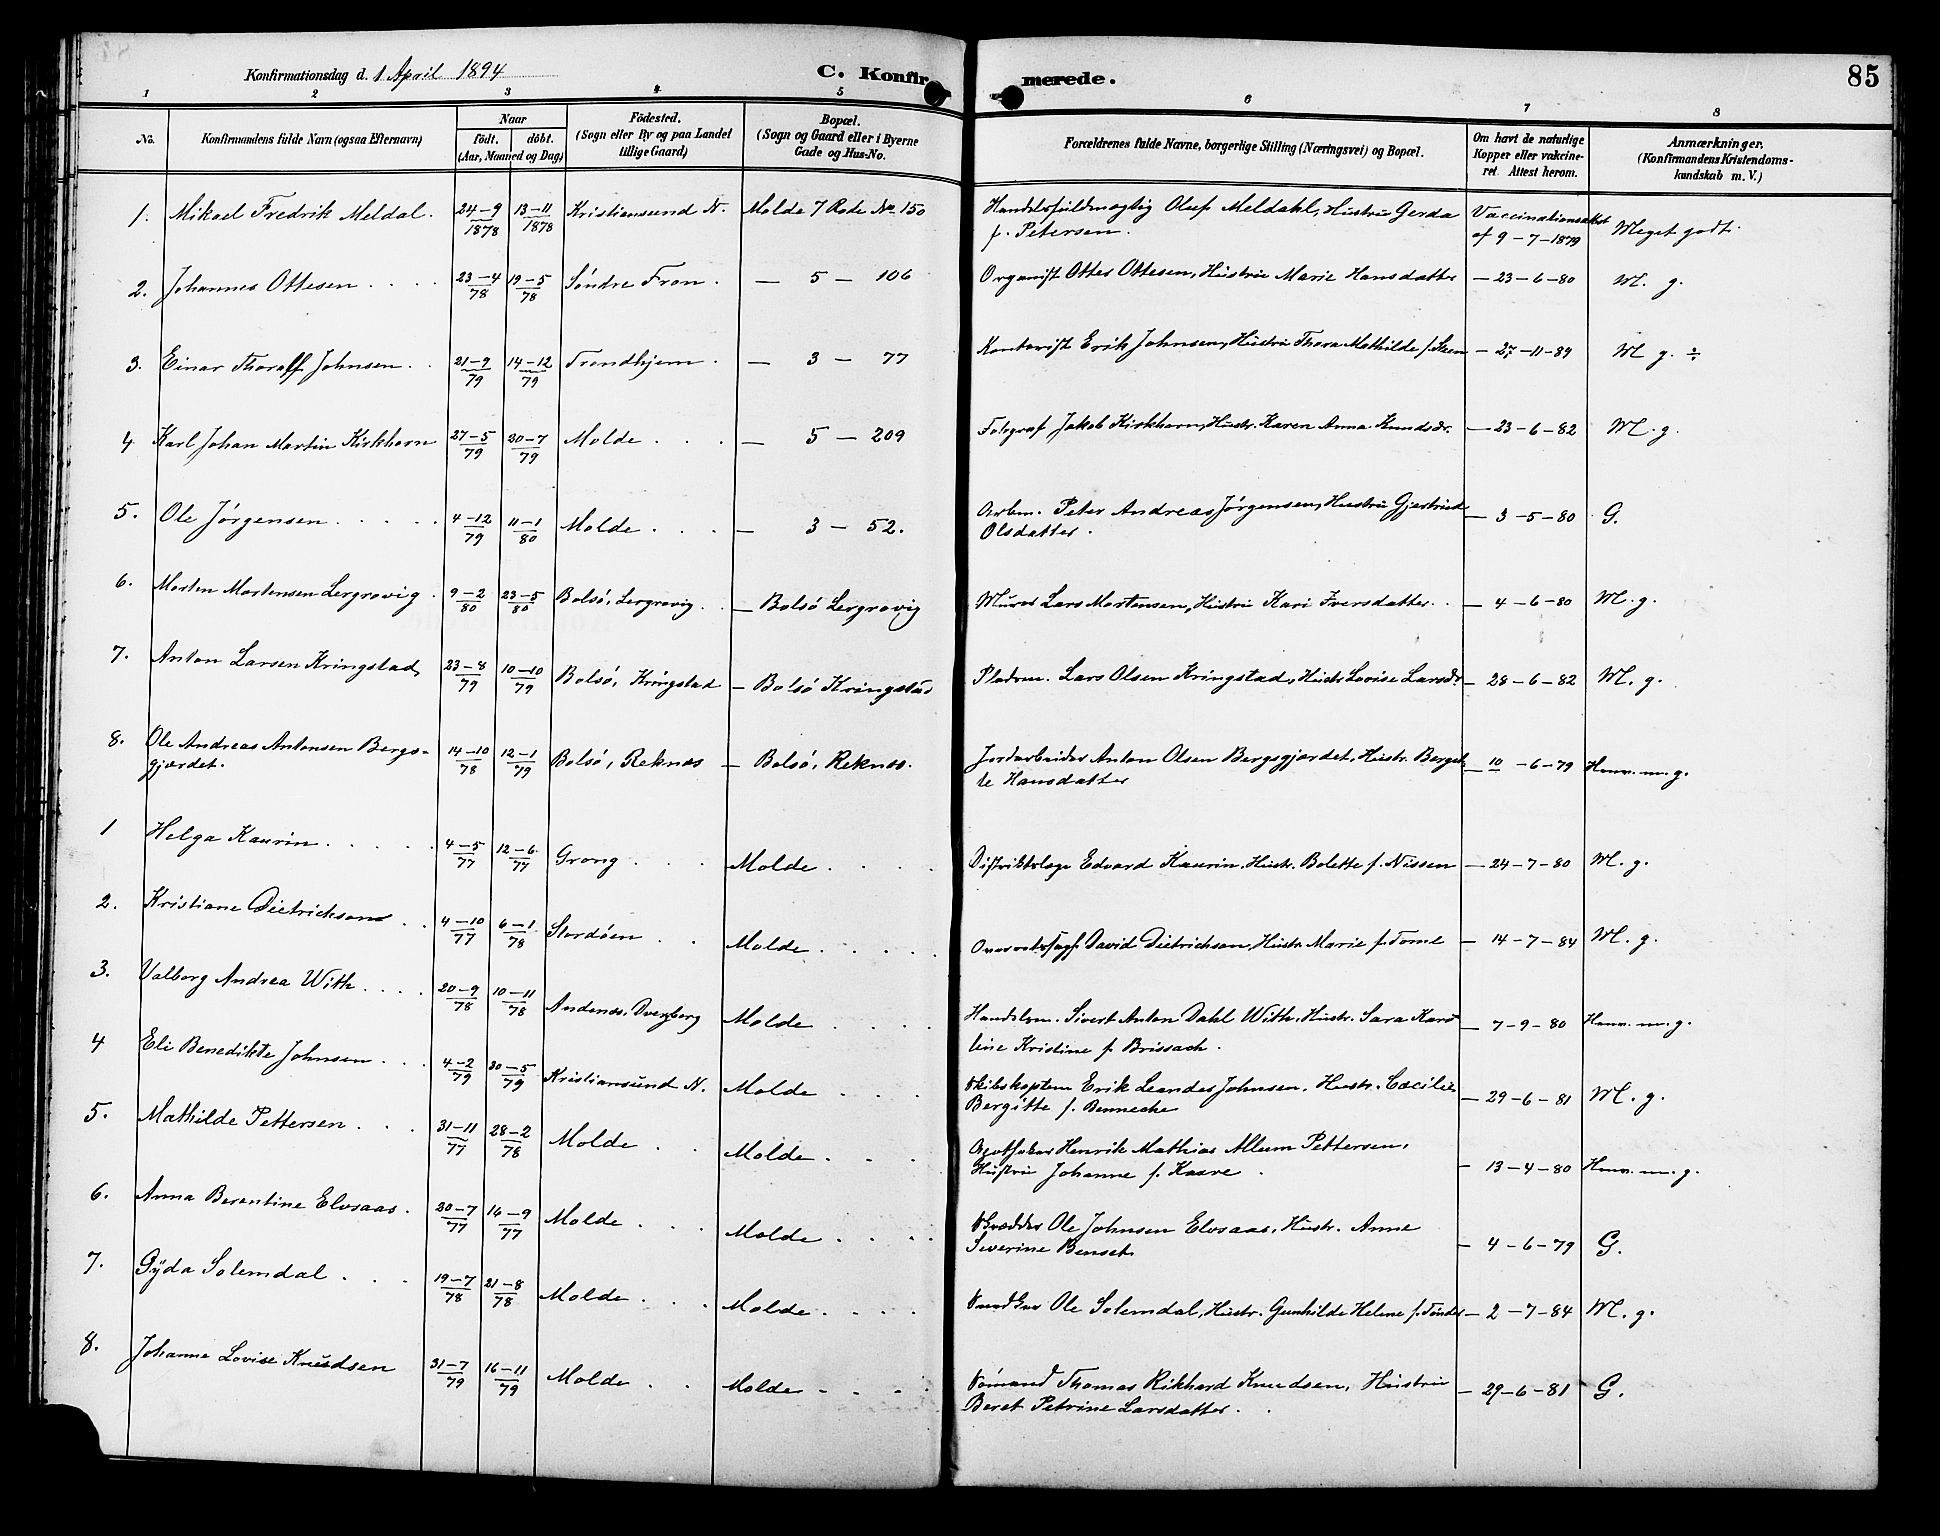 85
Konfirmationsdag d. 1 April 1894
C. Konfirmerede.
1 2 3 4 5 6 7 8
No. Konfirmandens fulde Navn (ogsaa Efternavn) Naar födt. döbt. (Aar, Maaned og Dag) Födested. (Sogn eller By og paa Landet tillige Gaard) Bopæl. (Sogn og Gaard eller i Byerne Gade og Hus-No. Forældrenes fulde Navne, borgerlige Stilling (Næringsvei) og Bopæl. Om havt de naturlige Kopper eller vakcineret. Attest herom. Anmærkninger. (Konfirmandens Kristendomskundskab m. V.)
1. Mikael Fredrik Meldal. 24-9 1878 13-11 1878 Kristiansund N. Molde 7 Rode No 150 Handelsfuldmægtig Oluf Meldahl, Hustru Gerda Vaccinationsattest Meget godt.
f. Petersen. af 9-7-1879
2. Johannes Ottesen . . . . 23-4 78 19-5 78 Søndre Fron . — 5 — 106 Organist Otter Ottesen, Hustru Marie Hansdatter — 23-6-80 M. g.
3. Einar Thoralf Johnsen . . 21-9 79 14-12 79 Trondhjem . — 3 — 77 Kontorist Erik Johnsen, Hustru Thora Mathilde f. Steen — 27-11-84 M g. ÷
4 Karl Johan Martin Kirkhorn 27-5 79 20-7 79 Molde . . . — 5 — 209 Jakob Kirkhorn, Hustr. Karen Anna Knudsdr. — 23-6-82 M. g.
5. Ole Jørgensen . . . . . 4-12 79 11-1 80 Molde . . . — 3 — 52. Arbm. Peter Andreas Jørgensen, Hustru Gjertrud — 3-5-80 G.
Olsdatter .
6. Morten Mortensen Lergrovig . 9-2 80 23-5 80 Bolsø, Lergrovig . . — Bolsø Lergrovig Murer Lars Mortensen, Hustru Kari Iversdatter . . — 4-6-80 M. g.
7. Anton Larsen Kringstad 23-8 79 10-10 79 Bolsø, Kringstad — Bolsø Kringstad Pladsm. Lars Olsen Kringstad, Hustr Lovise Larsdr — 28-6-82 M. g.
8. Ole Andreas Antonsen Bergs- 14-10 78 12-1 79 Bolsø, Reknæs — Bolsø, Reknæs. Jordarbeider Anton Olsen Bergsgjærdet, Hustr. Berget- — 10-6-79 Henv. m. g.
gjærdet. te Hansdatter
1 Helga Kaurin . . . . . 4-5 77 12-6 77 Grong . . . Molde . . . . Distriktslæge Edvard Kaurin, Hustr. Bolette f. Nissen — 24-7-80 M. g.
2. Kristiane Dietrichson . . 4-10 77 6-1 78 Stordøen . . Molde . . . . . David Dietrichson, Hustr. Marie f. Tome — 14-7-84 M. g.
3. Valborg Andrea With . . . . 20-9 78 10-11 78 Andenæs, Dverberg Molde . . . . Handelsm. Sivert Anton Dahl With, Hustr. Sara Karo- — 7-9-80 Henv. m. g.
line Kristine f. Brissach .
4 Eli Benedikte Johnsen . . . 4-2 79 30-5 79 Kristiansund N. Molde . . . . Skibskaptein Erik Leander Johnsen, Hustr. Cæcilie — 29-6-81 M. g.
Bergitte f. Bennecke
5. Mathilde Pettersen . . . 31-11 77 28-2 78 Molde . . Molde . . . Apotheker Henrik Mathias Allum Pettersen, — 13-4-80 Henv. m. g.
Hustru Johanne f. Kaare .
6. Anna Berentine Elvsaas . 20-7 77 16-9 77 Molde . . . Molde . . . . Skrædder Ole Johnsen Elvsaas, Hustr. Anne — 4-6-79 G.
Severine Benset
7. Gyda Solemdal . . . 19-7 78 21-8 78 Molde . . . Molde . . . . Snedker Ole Solemdal, Hustr. Gunhilde Helene f. Tønder — 2-7-84 M. g.
8. Johanne Lovise Knudsen 31-7 79 16-11 79 Molde . . Molde . . . . Sømand Thomas Rikhard Knudsen, Hustru — 29-6-81 G.
Beret Petrine Larsdatter .